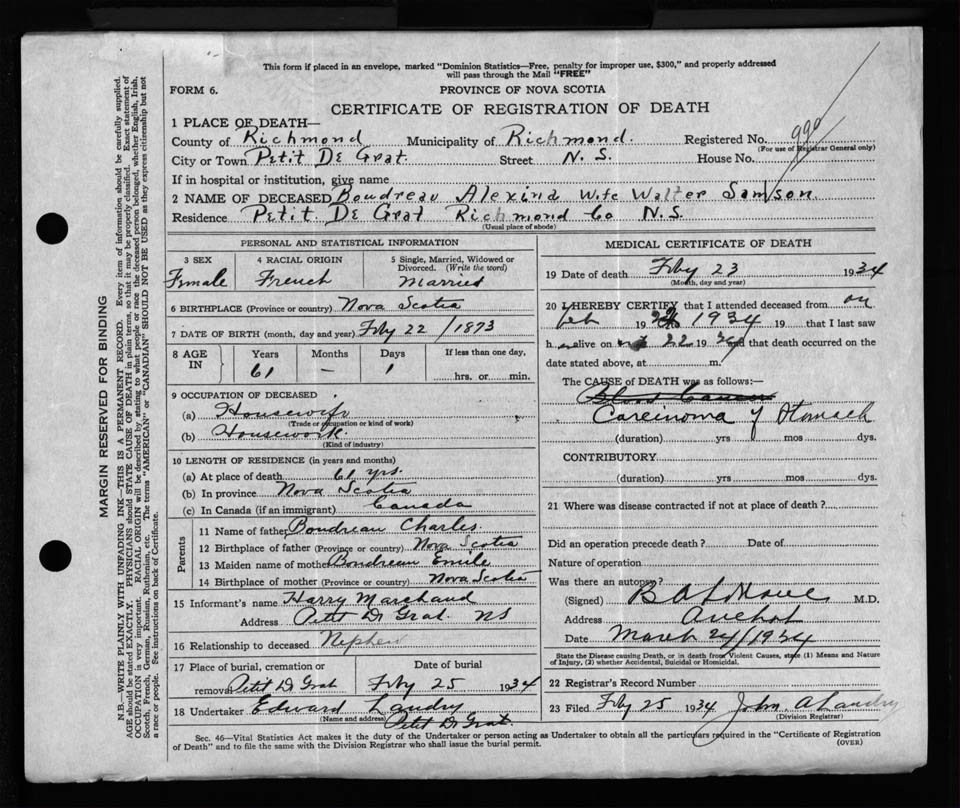 This form if placed in an envelope, marked "Dominion Statistics—Free, penalty for improper use, $300," and properly addressed
will pass through the Mail "FREE"
FORM 6.
PROVINCE OF NOVA SCOTIA
CERTIFICATE OF REGISTRATION OF DEATH
1 PLACE OF DEATH—
County of Richmond Municipality of Richmond. Registered No. 990
(For use of Registrar General only)
City or Town Petit De Grat. Street N. S. House No.
If in hospital or institution, give name
2 NAME OF DECEASED Boudreau Alexina Wife Walter Samson
Residence Petit De Grat Richmond Co N.S.
(Usual place of abode)
PERSONAL AND STATISTICAL INFORMATION
3 SEX 4 RACIAL ORIGIN 5 Single, Married, Widowed or
Divorced. (Write the word)
Female French Married
6 BIRTHPLACE (Province or country) Nova Scotia
7 DATE OF BIRTH (month, day and year) Feby 22 / 1873
8 AGE IN Years Months Days If less than one day,
61 – 1 hrs. or min.
9 OCCUPATION OF DECEASED
(a) Housewife
(Trade or occupation or kind of work)
(b) Housework.
(Kind of industry)
10 LENGTH OF RESIDENCE (in years and months)
(a) At place of death 61 yrs.
(b) In province Nova Scotia
(c) In Canada (if an immigrant) Canada
Parents
11 Name of father Boudreau Charles.
12 Birthplace of father (Province or country) Nova Scotia
13 Maiden name of mother Boudreau Emile
14 Birthplace of mother (Province or country) Nova Scotia
15 Informant's name Harry Marchand
Address Petit D Grat. NS
16 Relationship to deceased Nephew
17 Place of burial, cremation or Date of burial
removal Petit D Grat Feby 25 1934
18 Undertaker Edward Landry
(Name and address) Petit D Grat.
MEDICAL CERTIFICATE OF DEATH
19 Date of death Feby 23 1934
(Month, day and year)
20 I HEREBY CERTIFY that I attended deceased from on
Feb 19 1934 19 that I last saw
h alive on 22 19 34 and that death occurred on the
date stated above, at m.
The CAUSE of DEATH was as follows:—
Carcinoma of Stomach
(duration) yrs mos dys.
CONTRIBUTORY
(duration) yrs mos dys.
21 Where was disease contracted if not at place of death?
Did an operation precede death? Date of
Nature of operation
Was there an autopsy?
(Signed) M.D.
Address Arichat
Date March 24/1934
State the Disease causing Death, or in death from Violent Causes, state (1) Means and Nature
of Injury, (2) whether Accidental, Suicidal or Homicidal.
22 Registrar's Record Number
23 Filed Feby 25 1934 John A Landry
(Division Registrar)
Sec. 46—Vital Statistics Act makes it the duty of the Undertaker or person acting as Undertaker to obtain all the particulars required in the "Certificate of Registration
of Death" and to file the same with the Division Registrar who shall issue the burial permit.
(OVER)
MARGIN RESERVED FOR BINDING
N.B.—WRITE PLAINLY WITH UNFADING INK—THIS IS A PERMANENT RECORD. Every item of information should be carefully supplied.
AGE should be stated EXACTLY. PHYSICIANS should STATE CAUSE OF DEATH in plain terms, so that it may be properly classified. Exact statement of
OCCUPATION is very important. RACIAL ORIGIN will be described by stating to what people or race the deceased person belonged, whether English, Irish,
Scotch, French, German, Russian, Ruthenian, etc. The terms "AMERICAN" or "CANADIAN" SHOULD NOT BE USED as they express citizenship but not
a race or people. See instructions on back of Certificate.